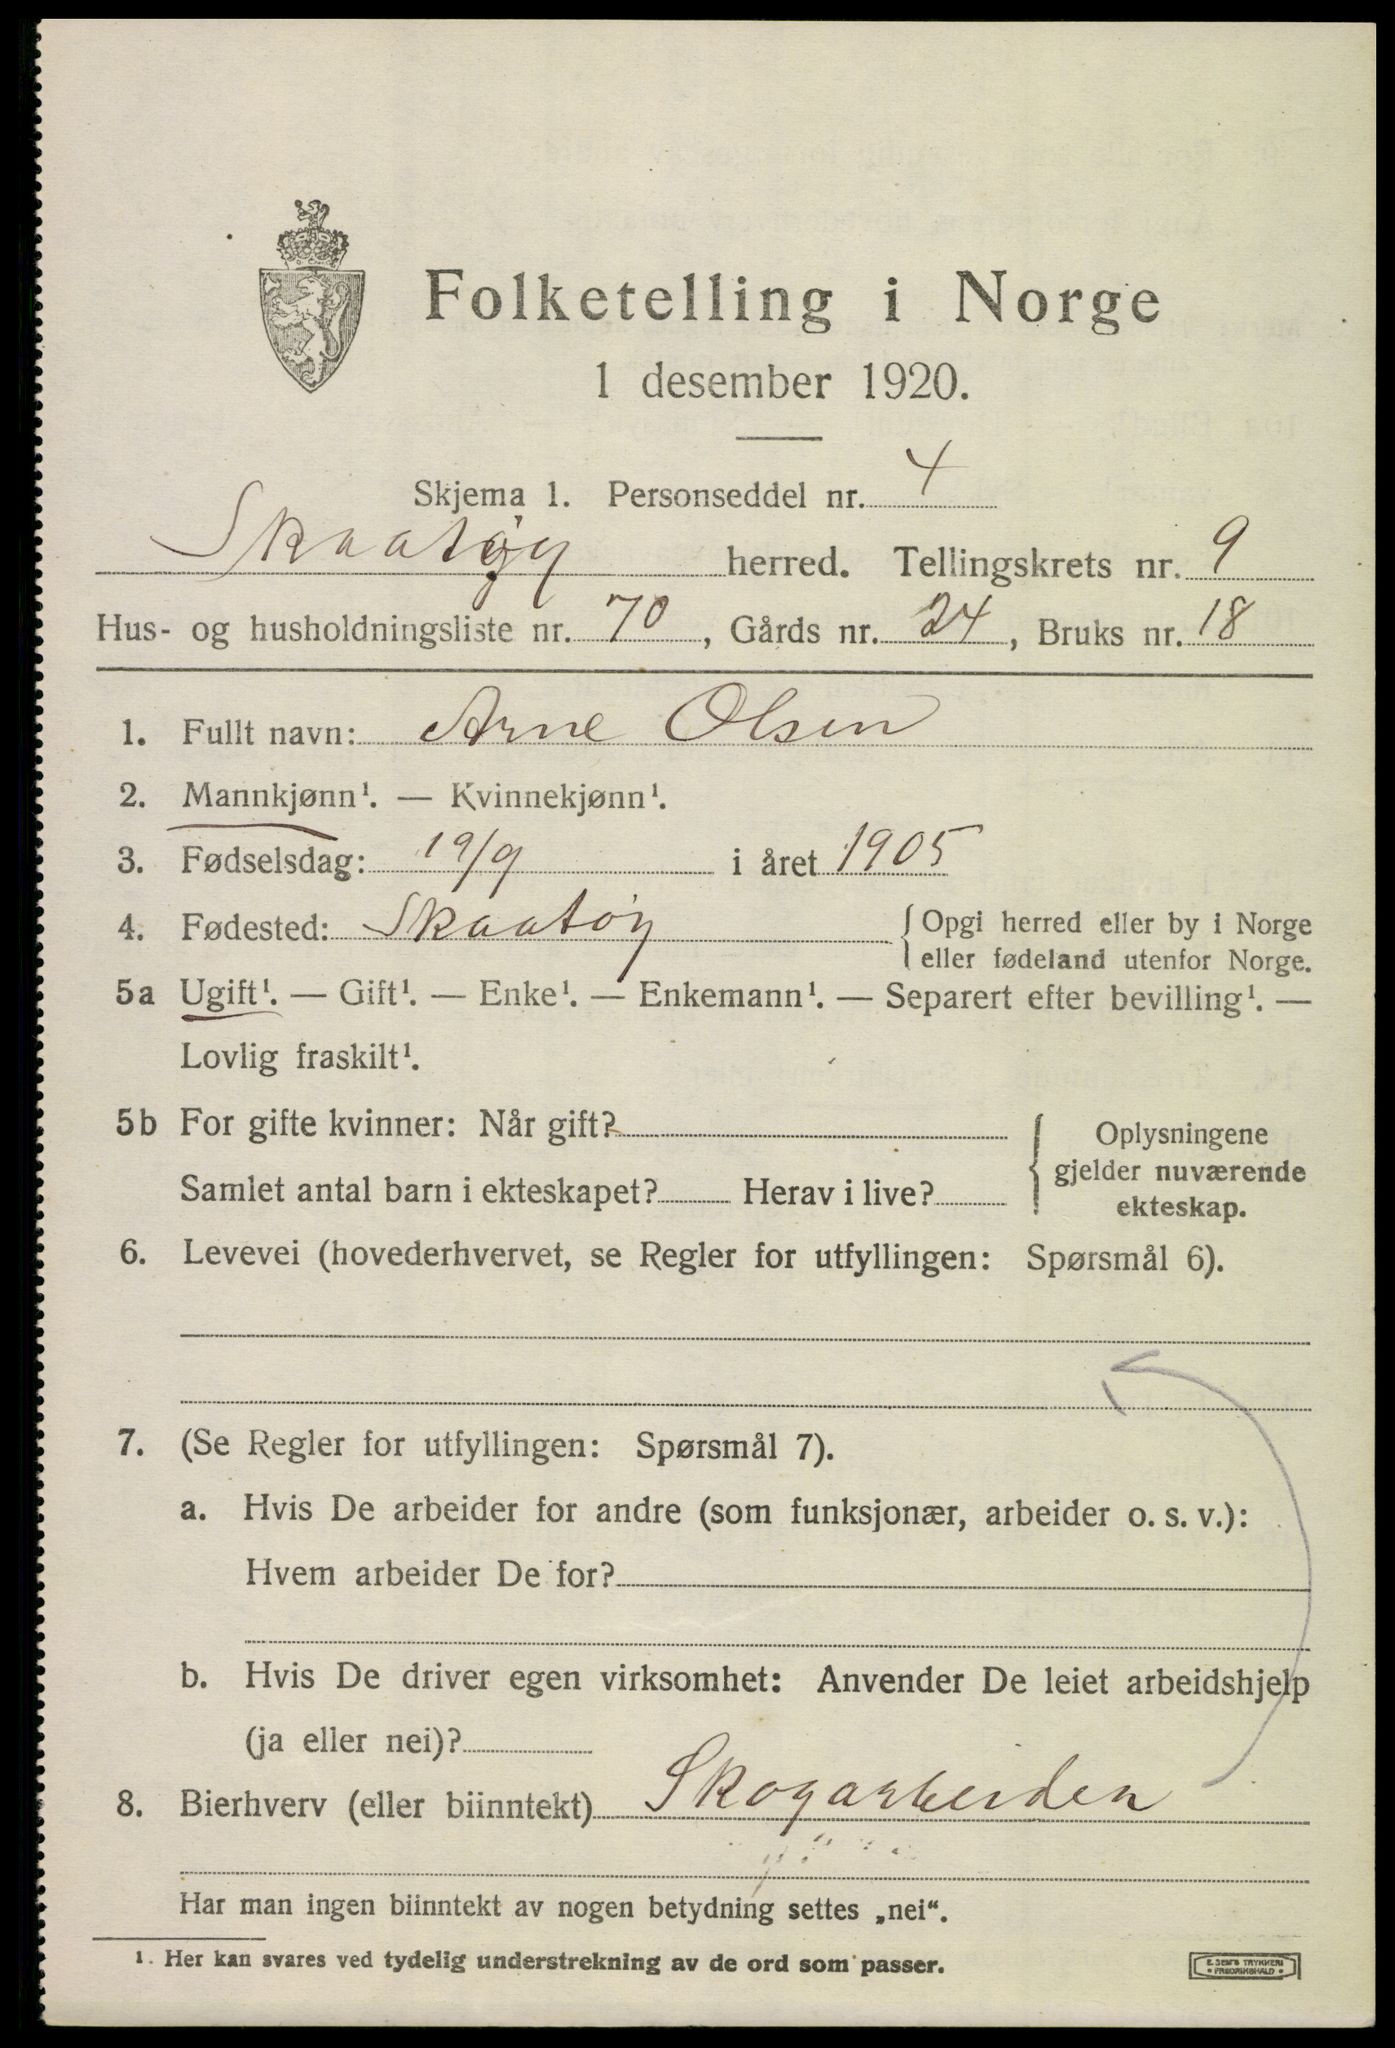 Folketelling i Norge
1 desember 1920.
Skjema 1. Personseddel nr. 4
Skaatøy herred. Tellingskrets nr. 9
Hus- og husholdningsliste nr. 70, Gårds nr. 24, Bruks nr. 18
1. Fullt navn: Arne Olsen
2. Mannkjønn¹. — Kvinnekjønn¹.
3. Fødselsdag: 19/9 i året 1905
4. Fødested: Skaatøy { Opgi herred eller by i Norge
eller fødeland utenfor Norge.
5a Ugift¹. — Gift¹. — Enke¹. — Enkemann¹. — Separert efter bevilling¹. —
Lovlig fraskilt¹.
5b For gifte kvinner: Når gift?
Samlet antal barn i ekteskapet? Herav i live?
{ Oplysningene
gjelder nuværende
ekteskap.
6. Levevei (hovederhvervet, se Regler for utfyllingen: Spørsmål 6).
7. (Se Regler for utfyllingen: Spørsmål 7).
a. Hvis De arbeider for andre (som funksjonær, arbeider o. s. v.):
Hvem arbeider De for?
b. Hvis De driver egen virksomhet: Anvender De leiet arbeidshjelp
(ja eller nei)?
8. Bierhverv (eller biinntekt) Skogarbeider
Har man ingen biinntekt av nogen betydning settes „nei“.
1. Her kan svares ved tydelig understrekning av de ord som passer.
E. SEM'S TRYKKERI
• FREDRIKSHALD •